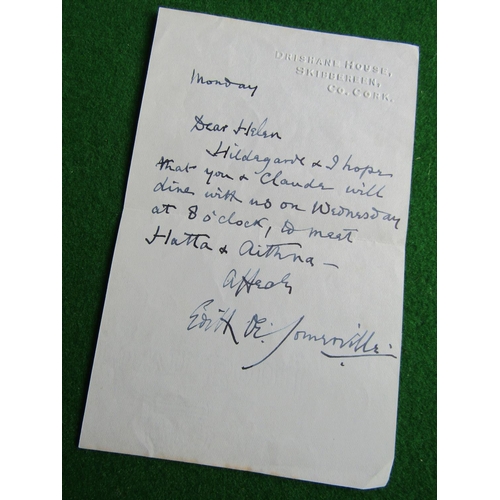 DRISHANE HOUSE,
SKIBBEREEN,
CO. CORK.
Monday
Dear Helen
Hildegarde & I hope
that you & Claude will
dine with us on Wednesday
at 8 o'clock, to meet
Hatta & Aithna —
Affecly
Edith Œ. Somerville.